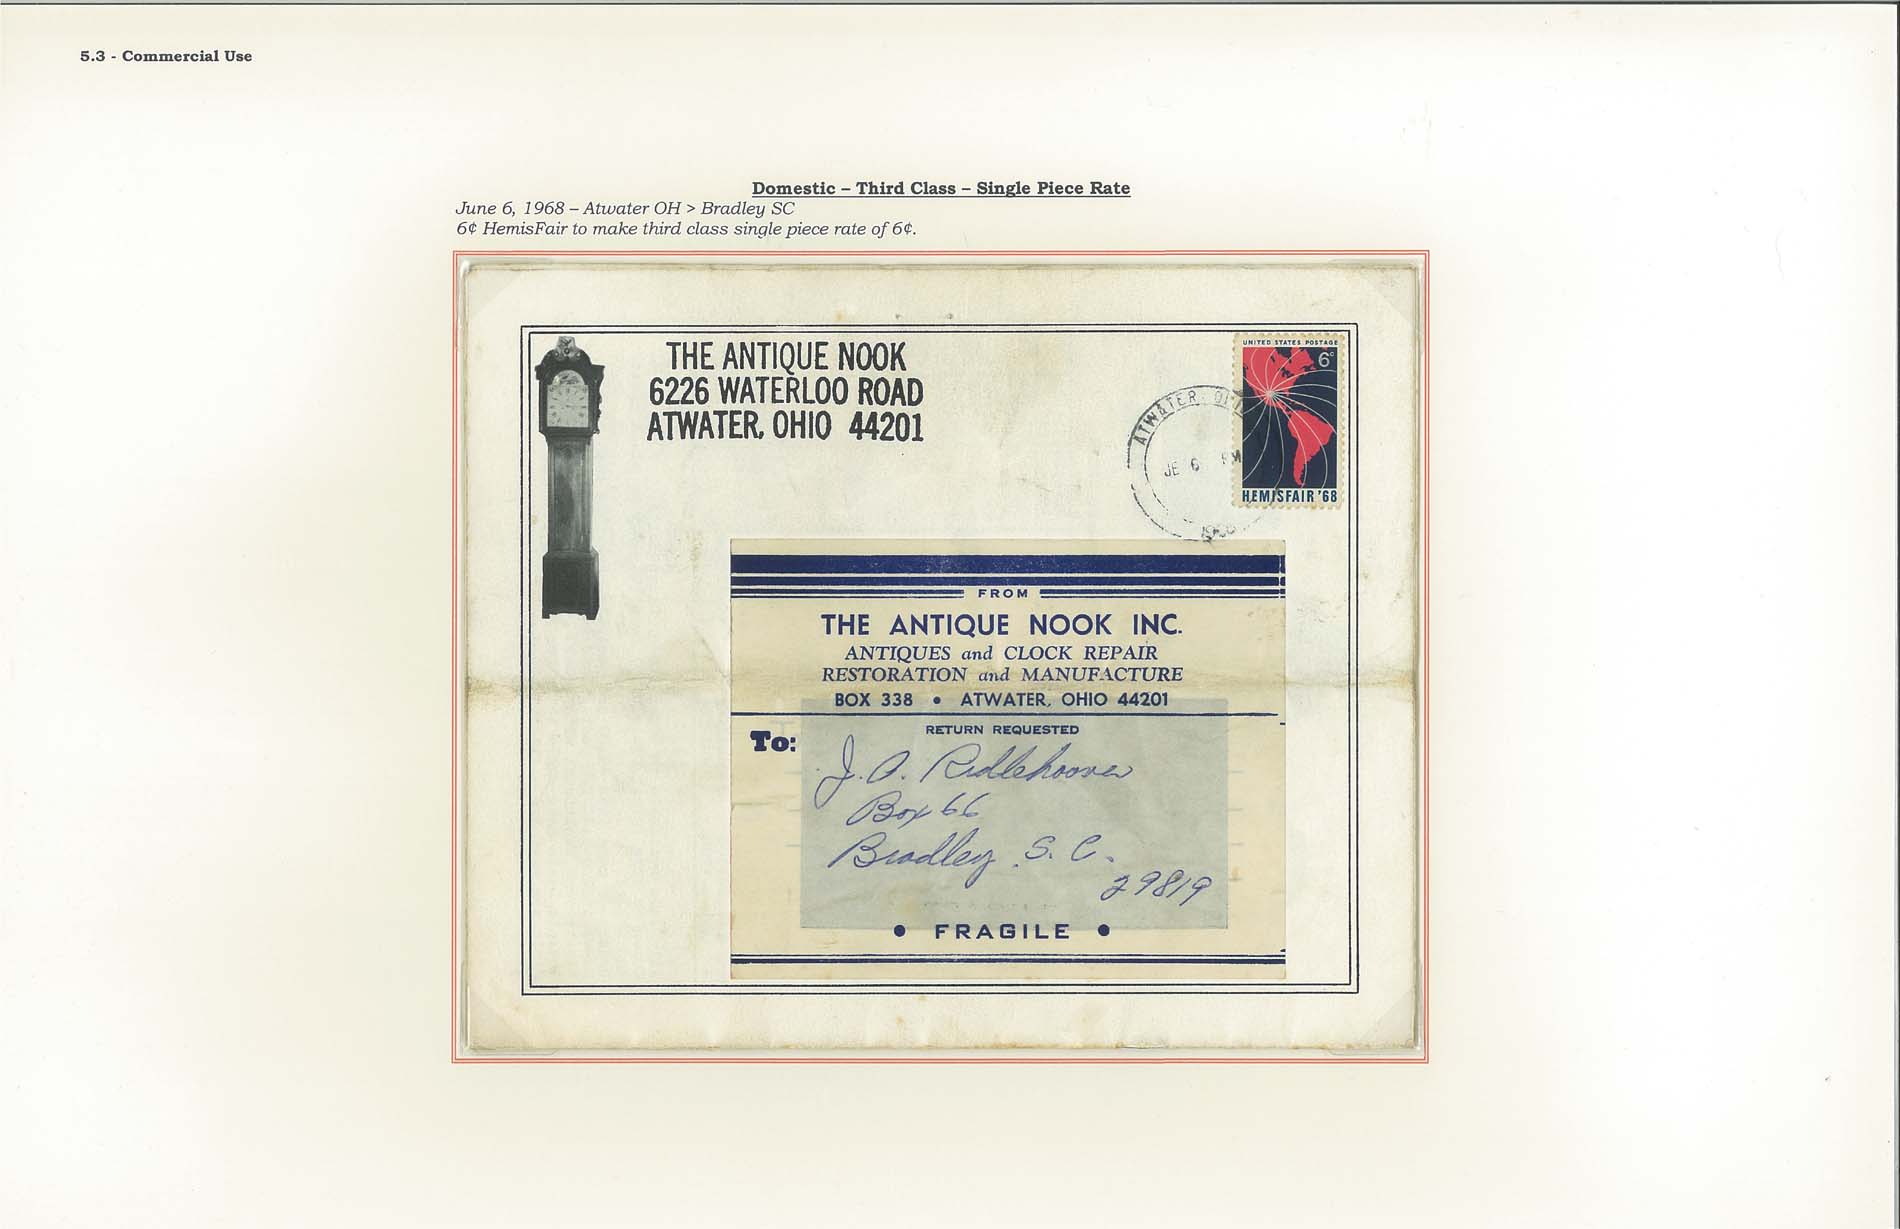 5.3 - Commercial Use
Domestic – Third Class – Single Piece Rate
June 6, 1968 – Atwater OH > Bradley SC
6¢ HemisFair to make third class single piece rate of 6¢.
THE ANTIQUE NOOK
6226 WATERLOO ROAD
ATWATER, OHIO 44201
UNITED STATES POSTAGE
6c
HEMISFAIR '68
ATWATER, OHIO
JE 6 PM
1968
FROM
THE ANTIQUE NOOK INC.
ANTIQUES and CLOCK REPAIR
RESTORATION and MANUFACTURE
BOX 338 • ATWATER, OHIO 44201
RETURN REQUESTED
To:
J. O. Ridlehoover
Box 66
Bradley S. C.
29819
• FRAGILE •